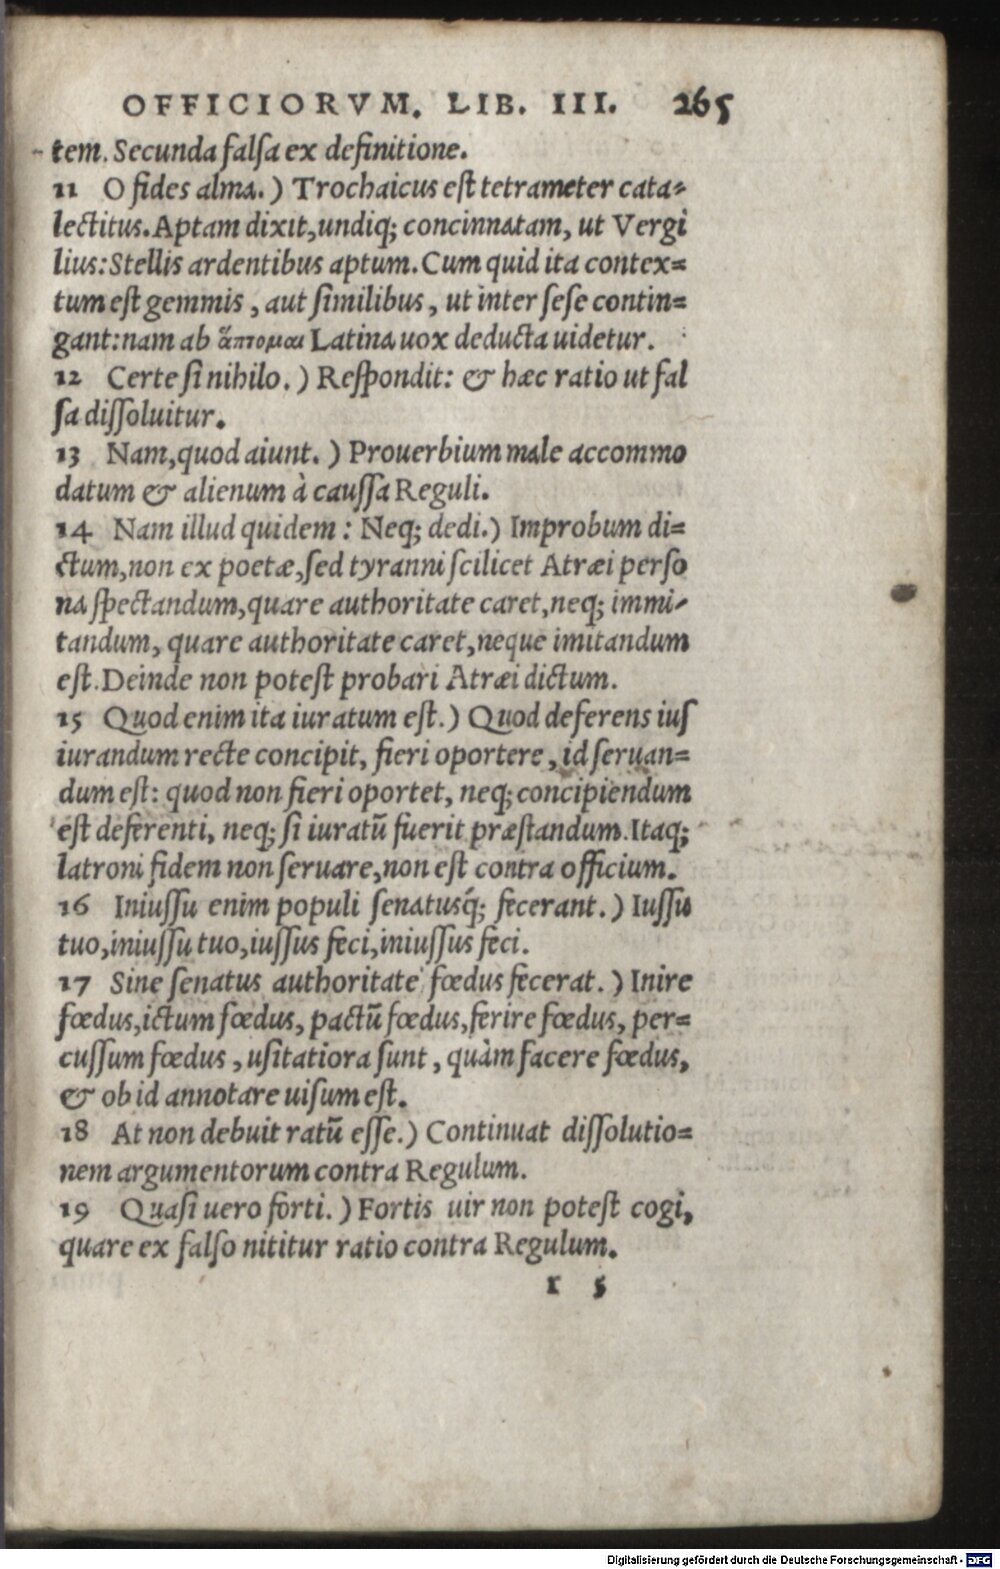 OFFICIORVM. LIB. III. 265
tem. Secunda falſa ex definitione.
11 O fides alma.) Trochaicus eſt tetrameter cata-
lectitus. Aptam dixit, undiq; concinnatam, ut Vergi
lius: Stellis ardentibus aptum. Cum quid ita contex=
tum eſt gemmis, aut ſimilibus, ut inter ſeſe contin=
gant: nam ab ἅπτομαι Latina uox deducta uidetur.
12 Certe ſi nihilo.) Reſpondit: & hæc ratio ut fal
ſa diſſoluitur.
13 Nam, quod aiunt.) Prouerbium male accommo
datum & alienum à cauſſa Reguli.
14 Nam illud quidem: Neq; dedi.) Improbum di=
ctum, non ex poetæ, ſed tyranni ſcilicet Atræi perſo
na ſpectandum, quare authoritate caret, neq; immi-
tandum, quare authoritate caret, neque imitandum
eſt. Deinde non poteſt probari Atræi dictum.
15 Quod enim ita iuratum eſt.) Quod deferens iuſ
iurandum recte concipit, fieri oportere, id ſeruan=
dum eſt: quod non fieri oportet, neq; concipiendum
eſt deferenti, neq; ſi iuratũ fuerit præſtandum. Itaq;
latroni fidem non ſeruare, non eſt contra officium.
16 Iniuſſu enim populi ſenatusq́; fecerant.) Iuſſu
tuo, iniuſſu tuo, iuſſus feci, iniuſſus feci.
17 Sine ſenatus authoritate fœdus fecerat.) Inire
fœdus, ictum fœdus, pactũ fœdus, ferire fœdus, per=
cuſſum fœdus, uſitatiora ſunt, quàm facere fœdus,
& ob id annotare uiſum eſt.
18 At non debuit ratũ eſſe.) Continuat diſſolutio=
nem argumentorum contra Regulum.
19 Quaſi uero forti.) Fortis uir non poteſt cogi,
quare ex falſo nititur ratio contra Regulum.
r 5
Digitalisierung gefördert durch die Deutsche Forschungsgemeinschaft - DFG